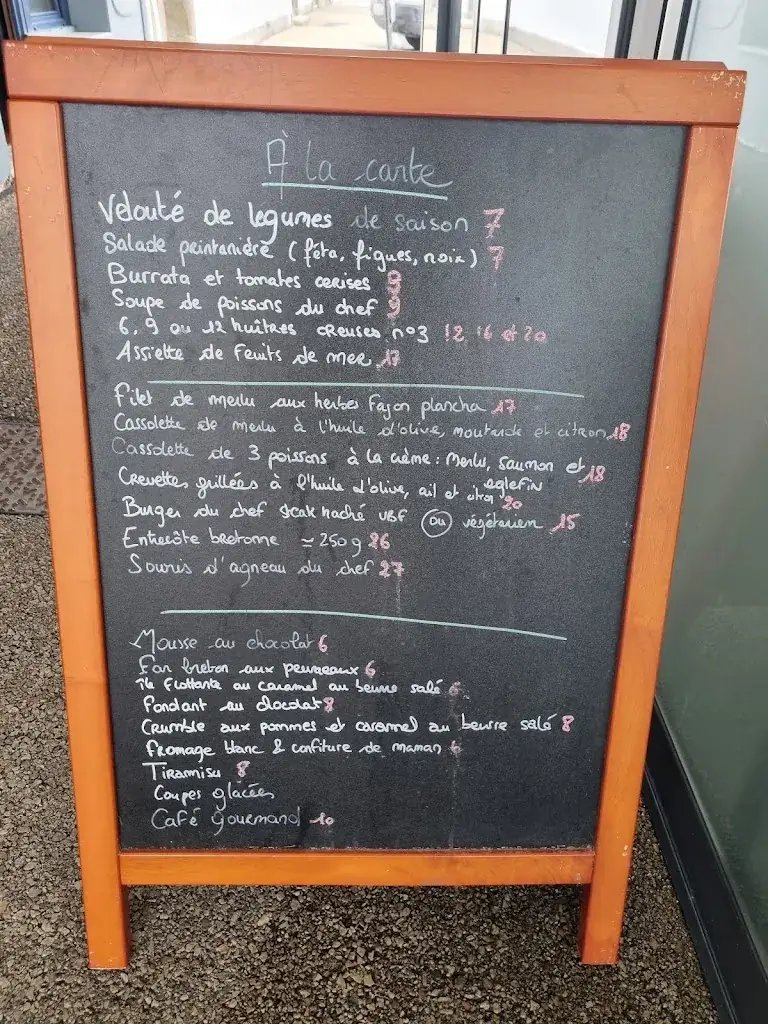 À la carte
Velouté de légumes de saison 7
Salade printanière (féta, figues, noix) 7
Burrata et tomates cerises 9
Soupe de poissons du chef 9
6, 9 ou 12 huîtres creuses n°3 12 16 et 20
Assiette de Fruits de mer 17
Filet de merlu aux herbes façon plancha 17
Cassolette de merlu à l'huile d'olive, moutarde et citron 18
Cassolette de 3 poissons à la crème : Merlu, saumon et 18
eglefin
Crevettes grillées à l'huile d'olive, ail et citron 20
Burger du chef steak haché VBF ou végétarien 15
Entrecôte bretonne ≃ 250 g 26
Souris d'agneau du chef 27
Mousse au chocolat 6
Far breton aux pruneaux 6
île Flottante au caramel au beurre salé 6
Fondant au chocolat 8
Crumble aux pommes et caramel au beurre salé 8
Fromage blanc & confiture de maman
Tiramisu 8
Coupes glacées
Café gourmand 10